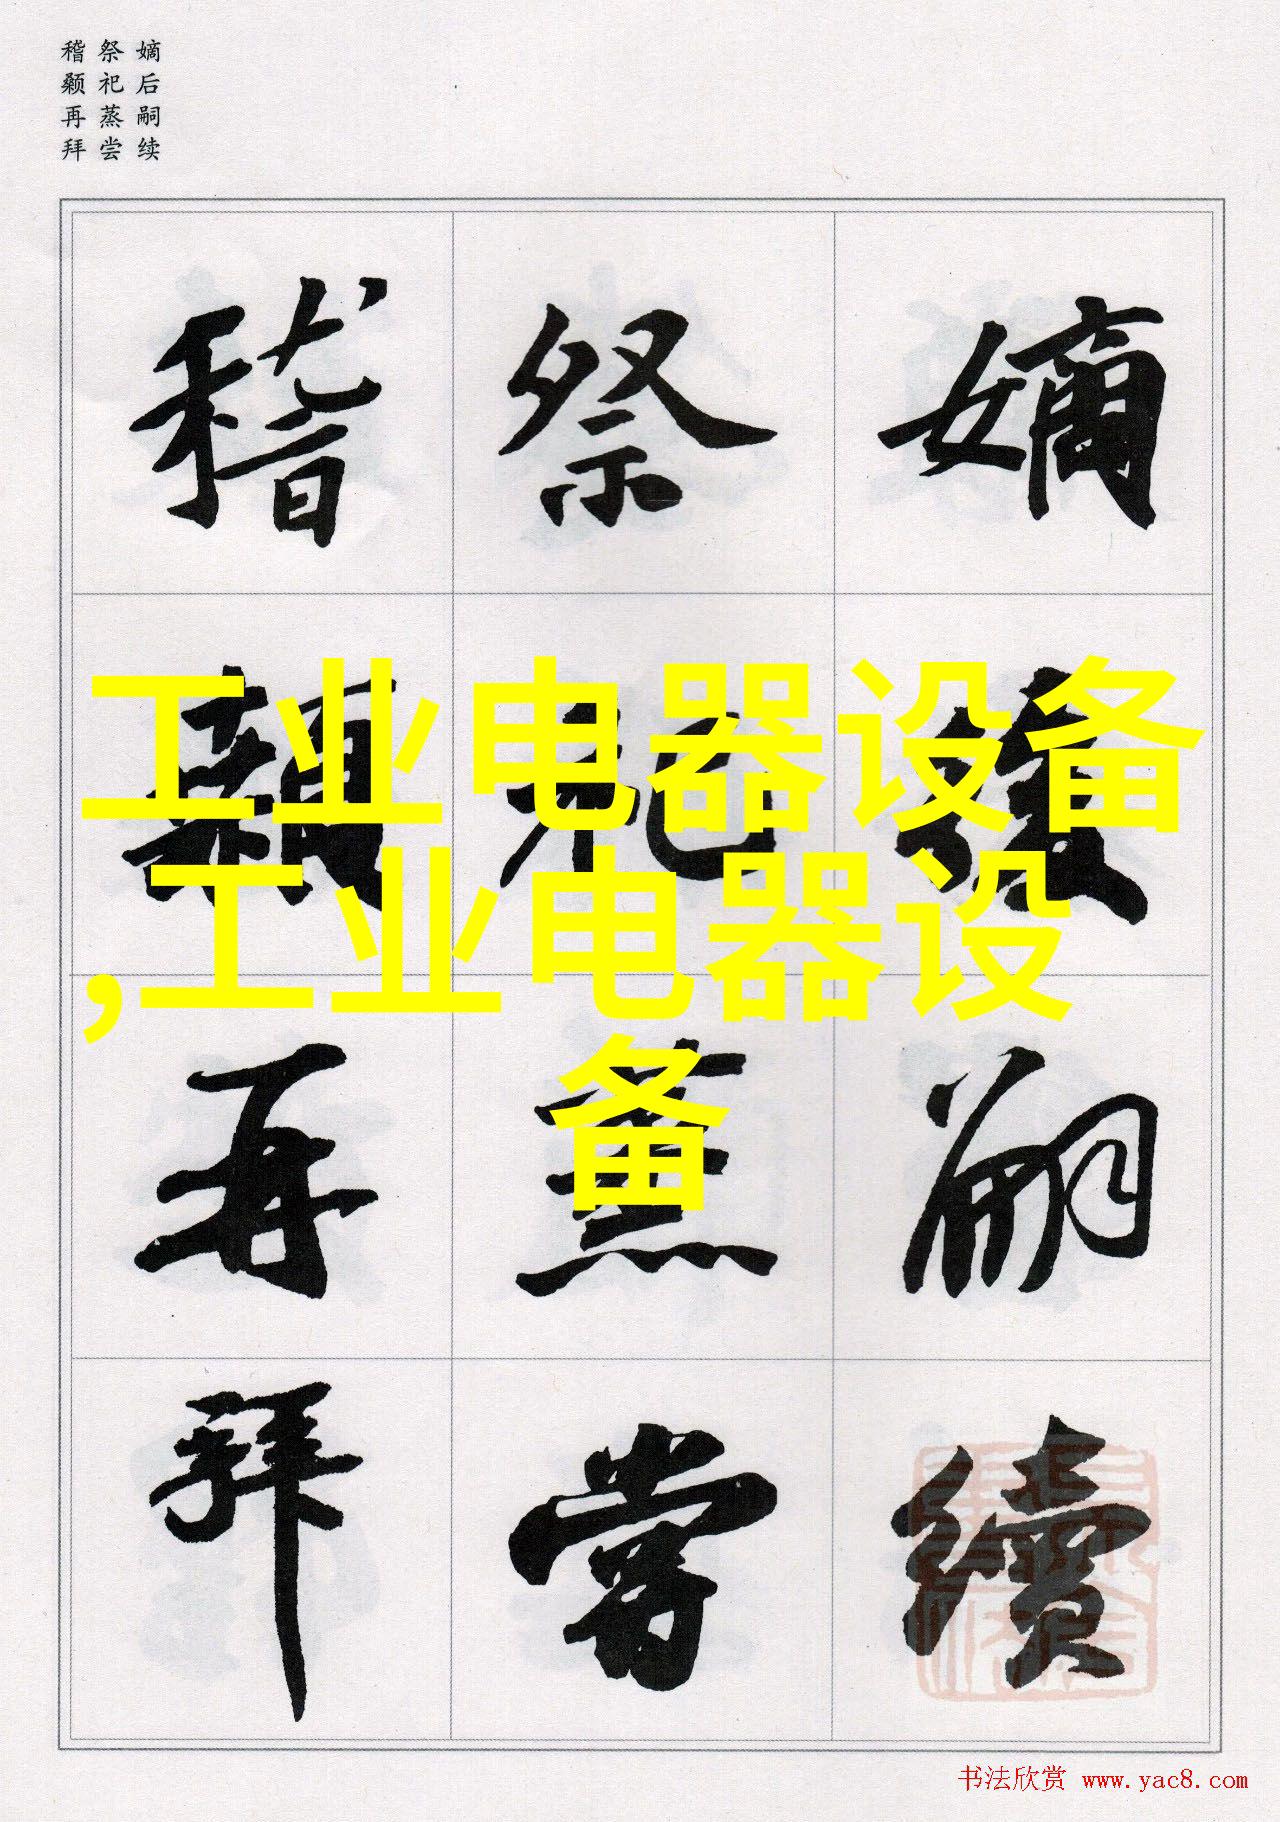 嫡后嗣续
祭祀蒸尝
稽颡再拜
嫡後嗣續
祭祀蒸嘗
稽顙再拜
工业电器设备
,工业电器设
备
书法欣赏 www.yac8.com